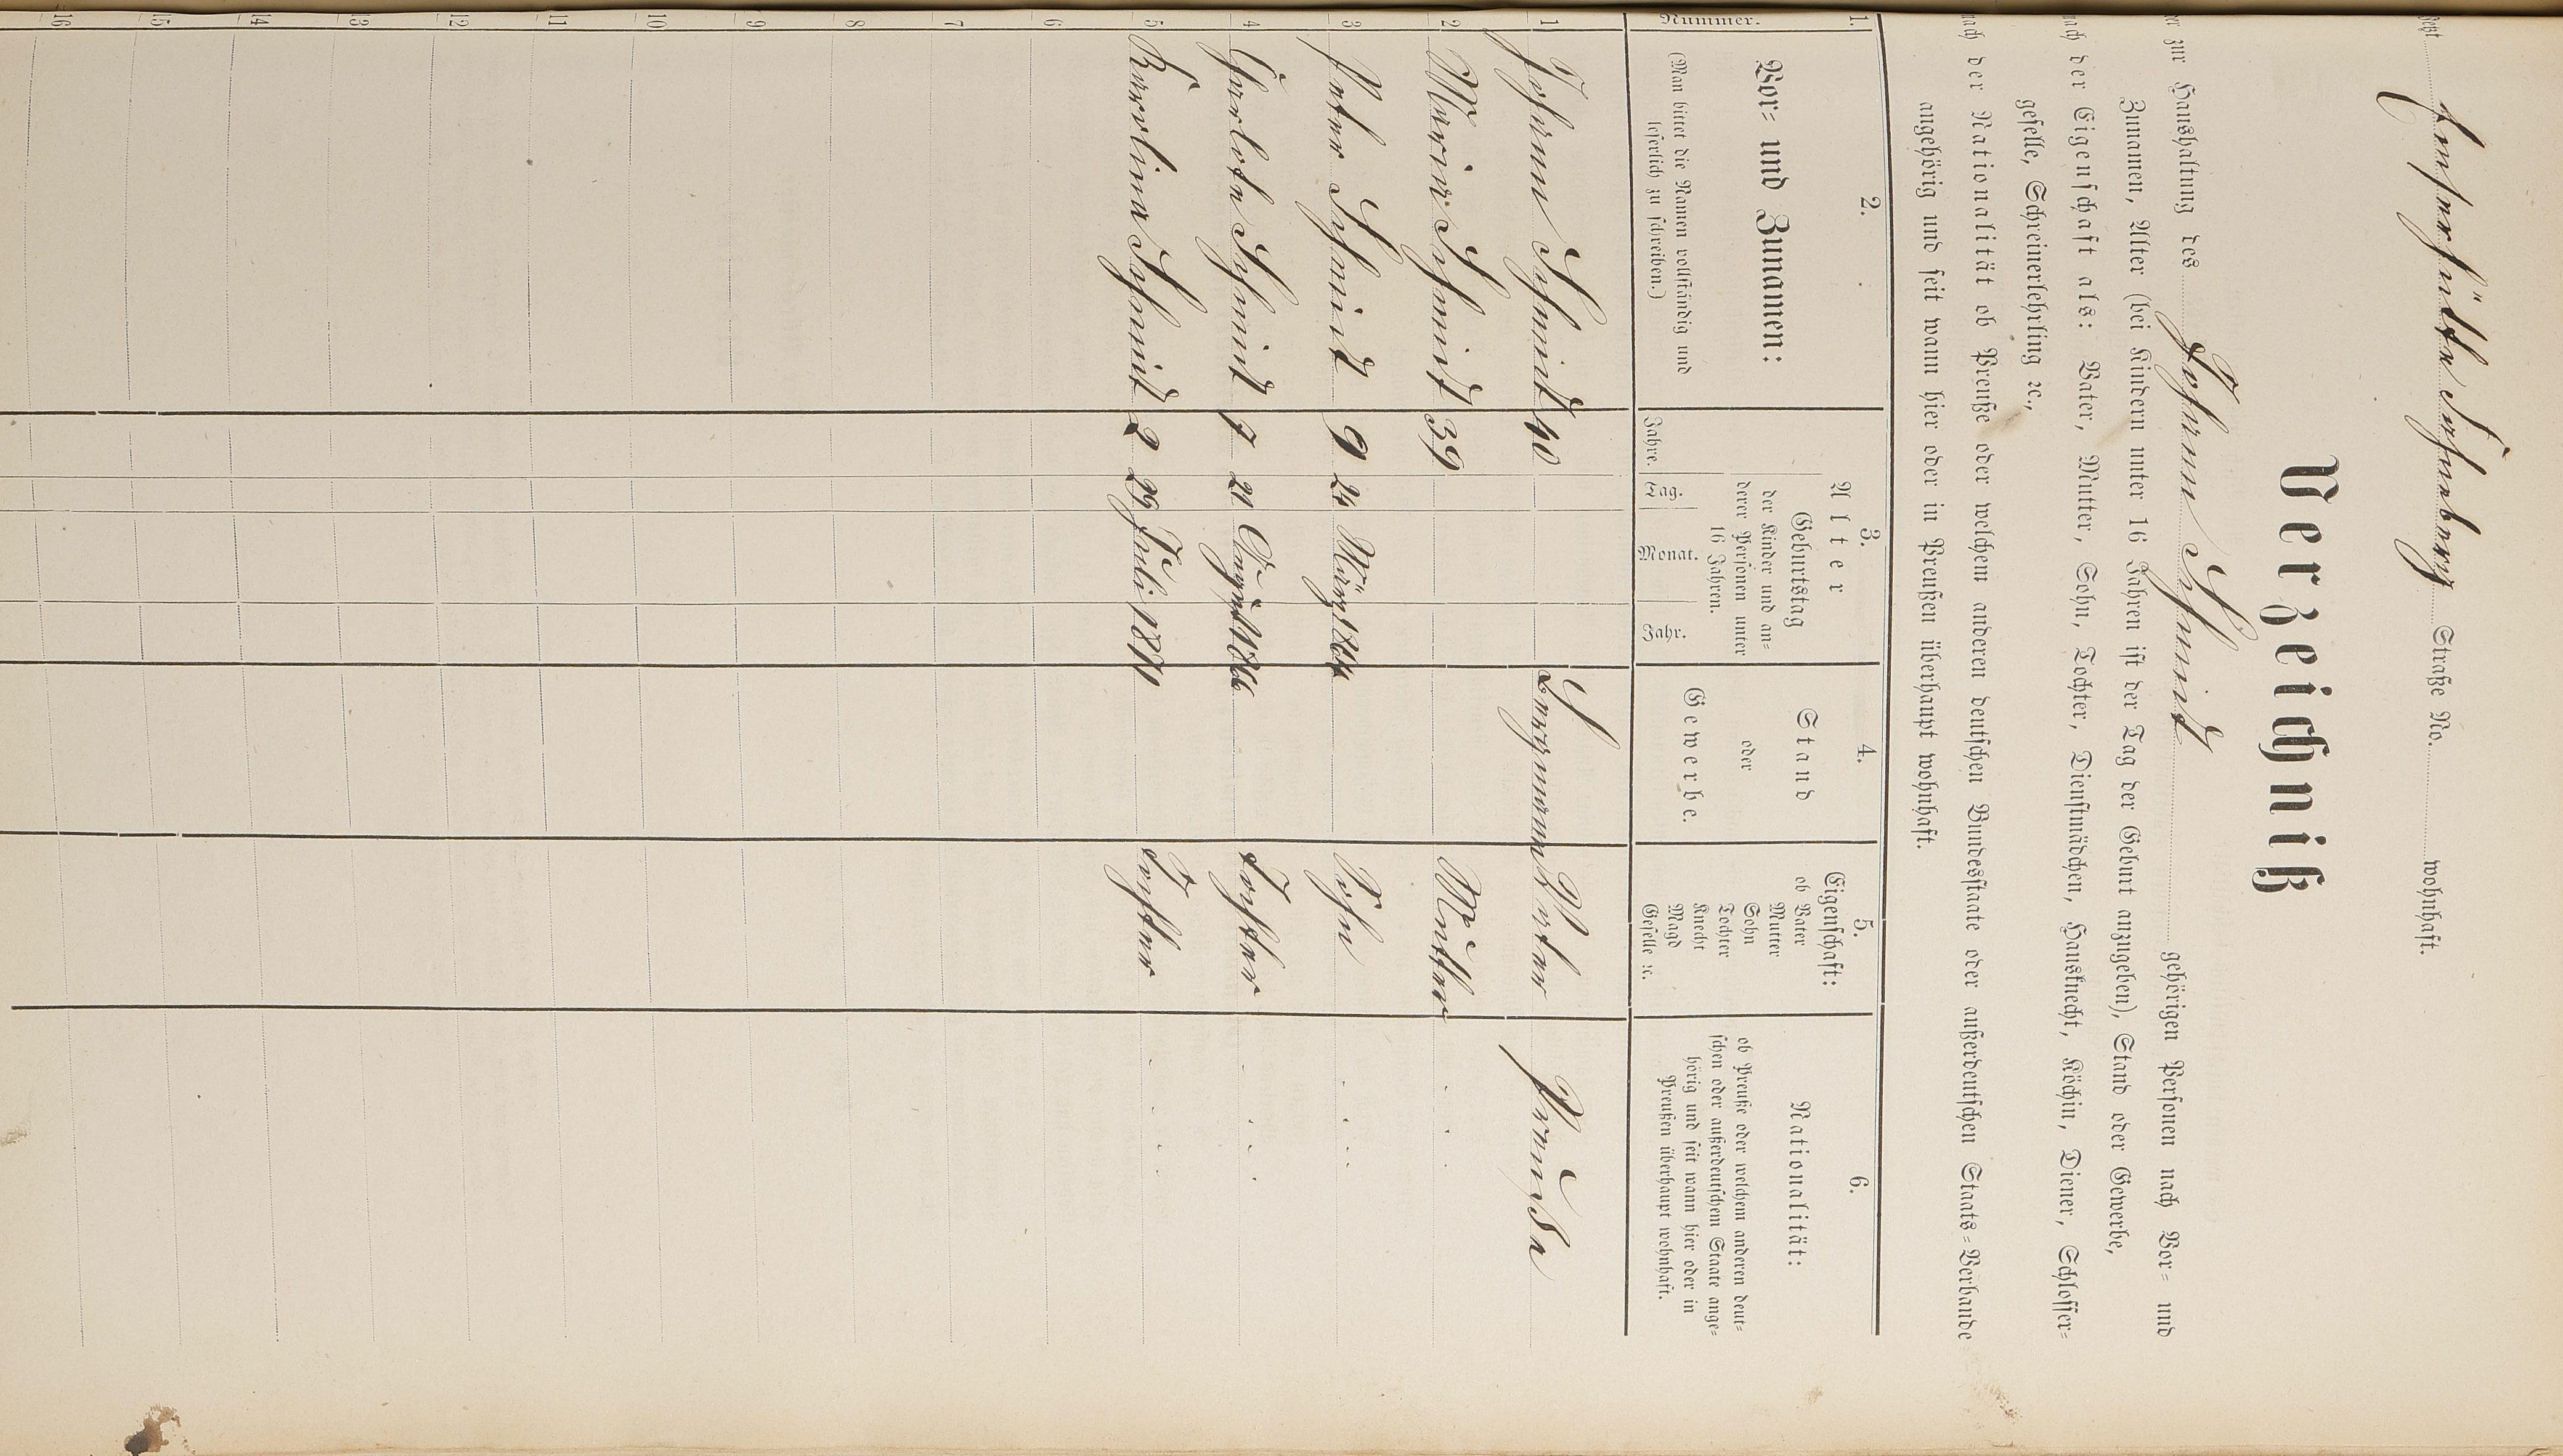 jetzt Enserhütte Scheeberg Straße No. wohnhaft.
Verzeichniß
der zur Haushaltung des Johann Schmidt gehörigen Personen nach Vor- und
Zunamen, Alter (bei Kindern unter 16 Jahren ist der Tag der Geburt anzugeben), Stand oder Gewerbe,
nach der Eigenschaft als: Vater, Mutter, Sohn, Tochter, Dienstmädchen, Hausknecht, Köchin, Diener, Schlosser-
geselle, Schreinerlehrling ꝛc.,
nach der Nationalität ob Preuße oder welchem anderen deutschen Bundesstaate oder außerdeutschen Staats-Verbande
angehörig und seit wann hier oder in Preußen überhaupt wohnhaft.
1. 2. 3. 4. 5. 6.
Nummer.
Vor- und Zunamen:
(Man bittet die Namen vollständig und
leserlich zu schreiben.)
Alter
Jahre.
Geburtstag
der Kinder und an-
derer Personen unter
16 Jahren.
Tag. Monat. Jahr.
Stand
oder
Gewerbe.
Eigenschaft:
ob Vater
Mutter
Sohn
Tochter
Knecht
Magd
Geselle ꝛc.
Nationalität:
ob Preuße oder welchem anderen deut-
schen oder außerdeutschem Staate ange-
hörig und seit wann hier oder in
Preußen überhaupt wohnhaft.
1 Johann Schmidt 40 Bergmann Vater Preuße
2 Maria Schmidt 39 Mutter
3 Peter Schmidt 9 24 März 1864 Sohn
4 Charlotte Schmidt 7 21 August 1866 Tochter
5 Karolina Schmidt 2 29 Juli 1871 Tochter
6
7
8
9
10
11
12
13
14
15
16